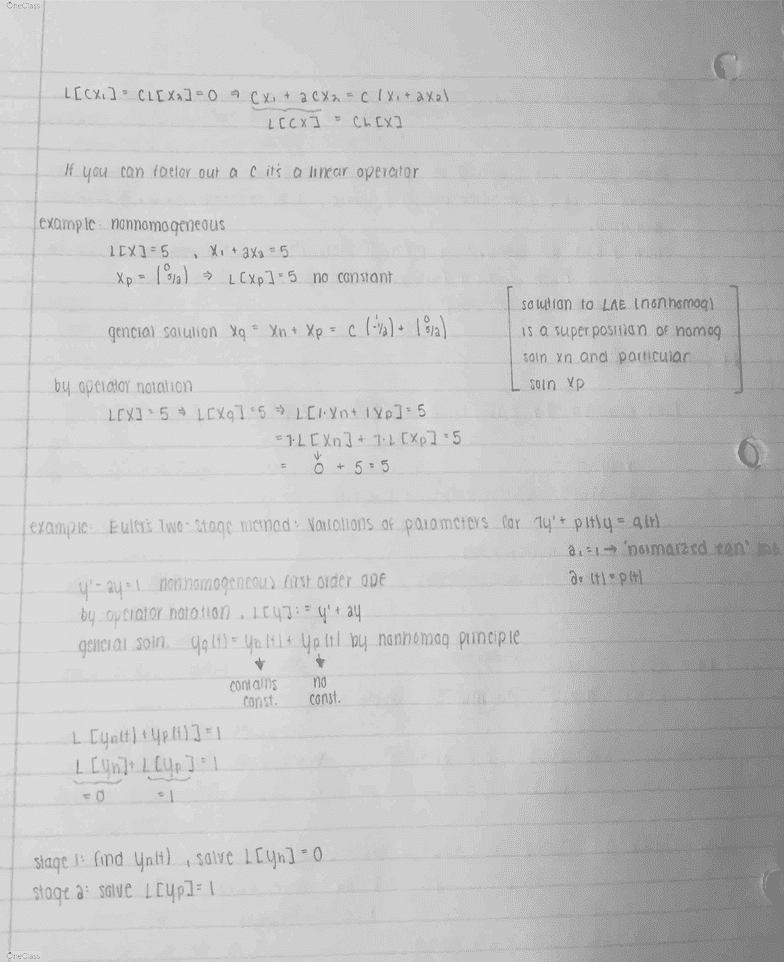 OneClass
L[cx₁] = cL[x₂] = 0 ⇒ cx₁ + 2cx₂ = c(x₁ + 2x₂)
L[cx] = cL[x]
If you can factor out a c it's a linear operator
example: nonhomogeneous
L[x] = 5 , x₁ + 2x₂ = 5
xp = (0 5/2) ⇒ L[xp] = 5 no constant
general solution xg = xh + xp = c (-1 1/2) + (0 5/2)
[solution to LAE (nonhomog)
is a superposition of homog
soln xh and particular
soln xp]
by operator notation
L[x] = 5 ⇒ L[xg] = 5 ⇒ L[1·xh + 1xp] = 5
= 1·L[xh] + 1·L[xp] = 5
↓
= 0 + 5 = 5
example: Euler's Two-Stage method: Variations of parameters for 1y' + p(t)y = q(t)
a₁ = 1 → "normalized
a₀(t) = p(t)
y' - 2y = 1 nonhomogeneous first order ODE
by operator notation , L[y] := y' + 2y
general soln. yg(t) = yh(t) + yp(t) by nonhomog principle
↓ ↓
contains no
const. const.
L[yh(t) + yp(t)] = 1
L[yh] + L[yp] = 1
= 0 = 1
stage 1: find yh(t) , solve L[yh] = 0
stage 2: solve L[yp] = 1
OneClass